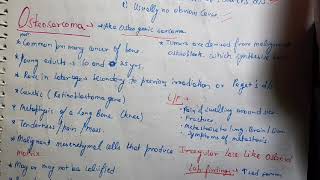 1) Usually no obvious
Osteosarcoma → Aka Osteogenic sarcoma
* Common primary cancer of bone
* Young adults → 10 and 25 yrs.
* Rare in later age & secondary to previous irradiation or Paget's d
* Genetic (Retinoblastoma gene)
* Metaphysis of a Long Bone (knee)
* Tenderness / Pain / Mass.
* Malignant mesenchymal cells that produce Irregular lace like Osteoid
matrix
* May or may not be calcified
* Tumors are derived from malignant
osteoblast. which synthesize
C/P
* Pain & swelling around
* Fracture
* Metastasis to lung, Brain
* Symptoms of metastasis
Lab findings